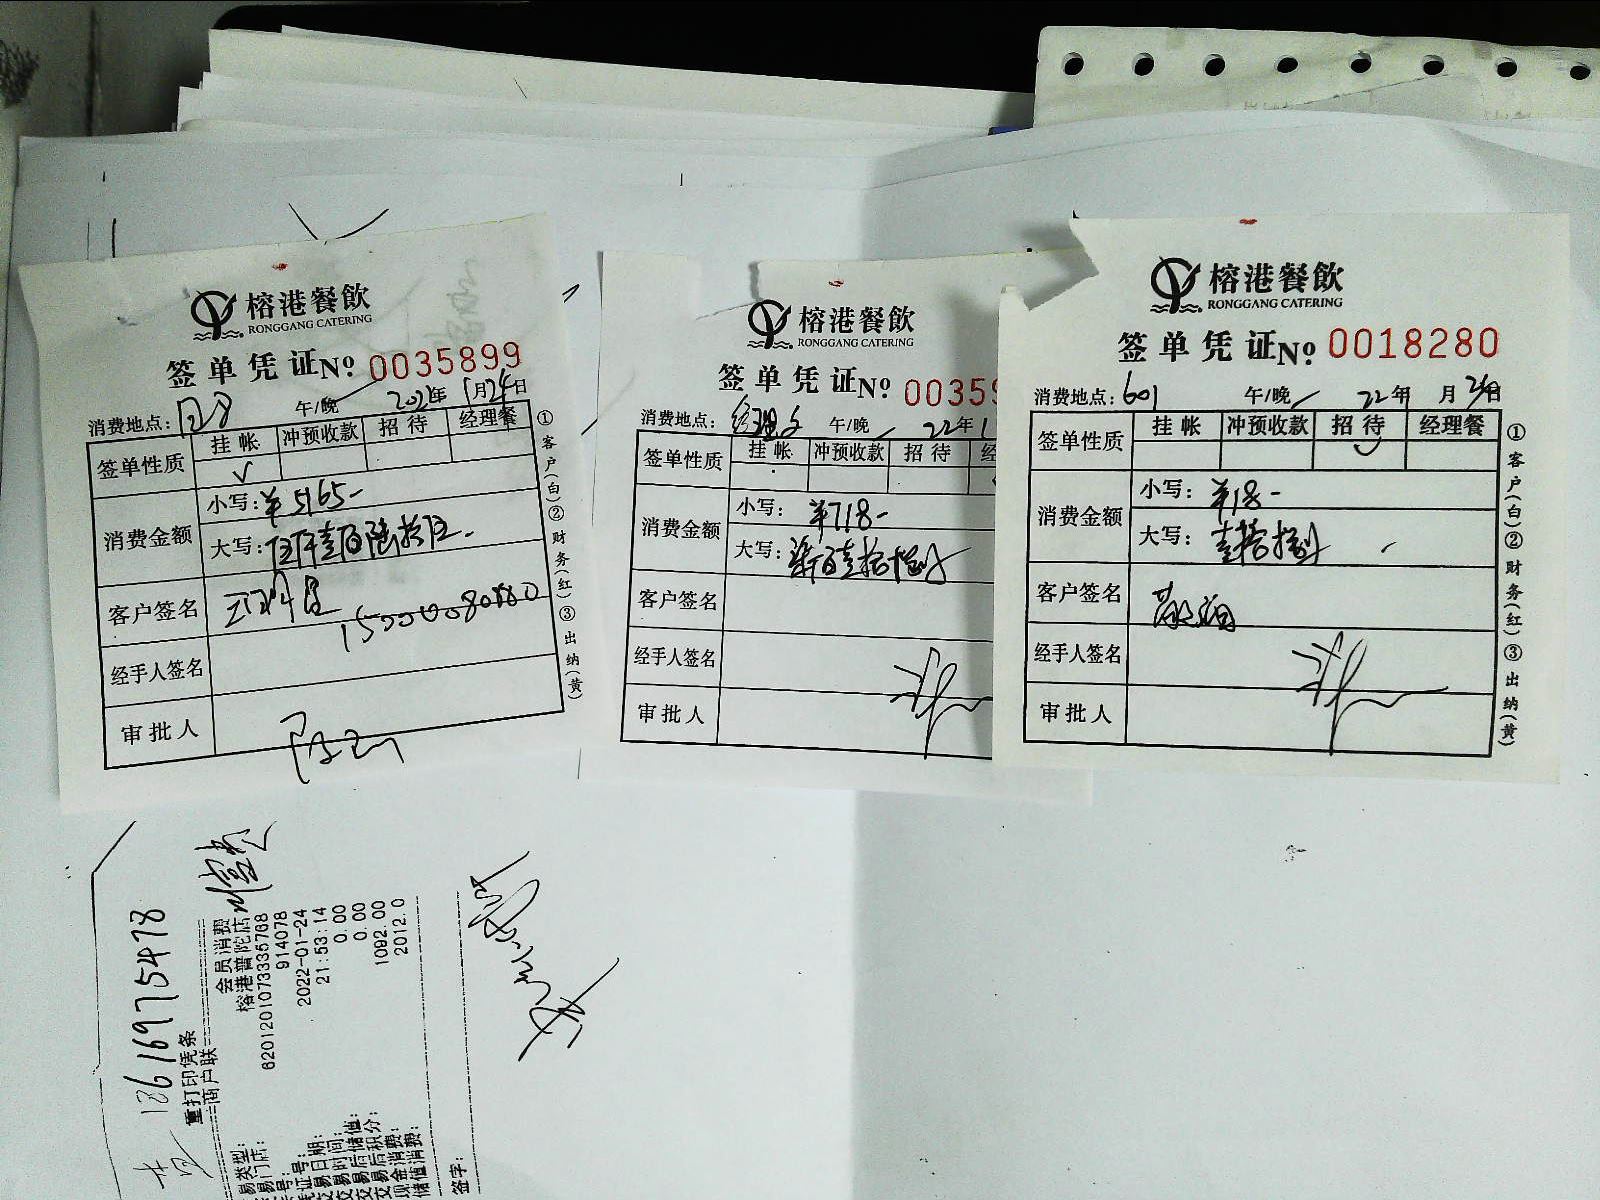 榕港餐飲
RONGGANG CATERING
签单凭证№ 0035899
消费地点: 午/晚 2022年 1月24日
签单性质 挂帐 冲预收款 招待 经理餐
✓
消费金额
小写: ¥5165-
大写: 伍仟壹佰陆拾伍
客户签名
经手人签名
审批人
①客户(白)②财务(红)③出纳(黄)
榕港餐飲
RONGGANG CATERING
签单凭证№ 00359
消费地点: 午/晚 22年 1
签单性质 挂帐 冲预收款 招待 经
消费金额
小写: ¥718-
大写: 柒佰壹拾捌
客户签名
经手人签名
审批人
榕港餐飲
RONGGANG CATERING
签单凭证№ 0018280
消费地点: 601 午/晚 22年 月24日
签单性质 挂帐 冲预收款 招待 经理餐
✓
消费金额
小写: ¥18-
大写: 壹拾捌
客户签名
经手人签名
审批人
①客户(白)②财务(红)③出纳(黄)
13616975478
重打印凭条
商户联
易类型: 会员消费
易门店: 榕港普陀店
号: 6201201073335768
证号: 914078
易日期: 2022-01-24
易时间: 21:53:14
易后储值: 0.00
交易后积分: 0.00
现金消费: 1092.00
储值消费: 2012.0
签字: